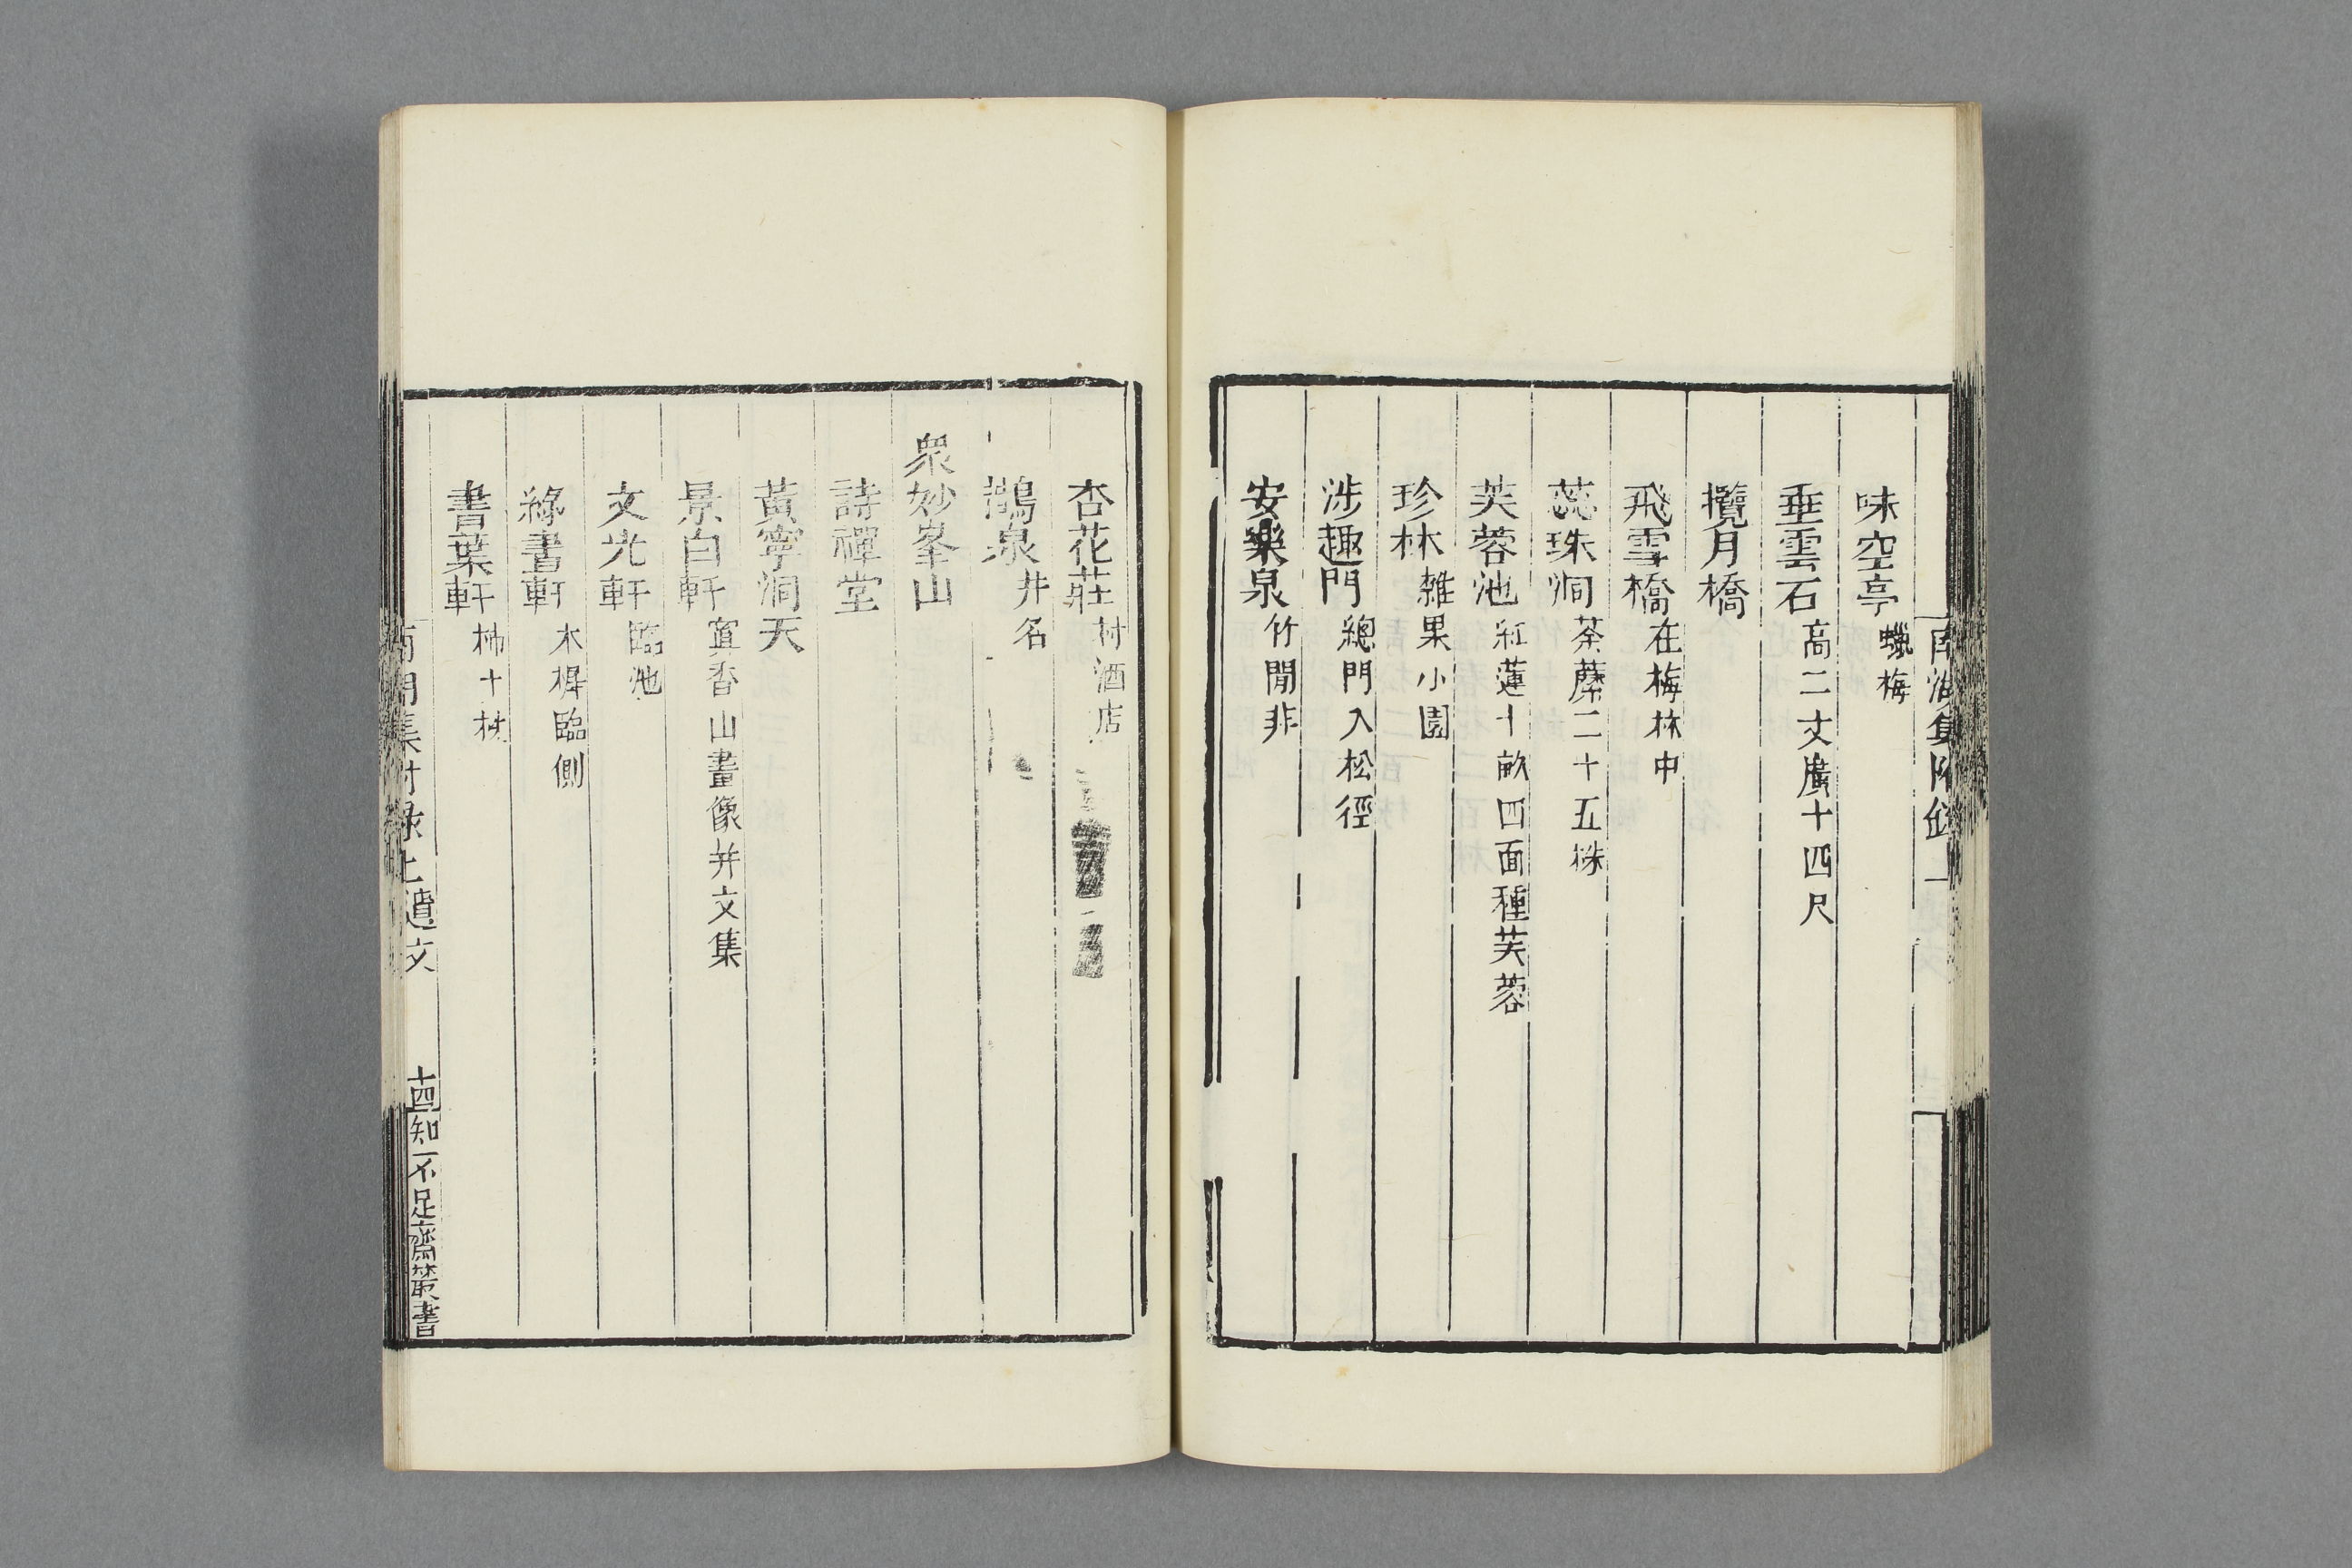 南湖集附錄上
味空亭蠟梅
垂雲石高二丈廣十四尺
攬月橋
飛雪橋在梅林中
蕊珠洞荼蘼二十五株
芙蓉池紅蓮十畝四面種芙蓉
珍林雜果小園
涉趣門總門入松徑
安樂泉竹閒井
杏花莊村酒店
鵲泉井名
衆妙峯山
詩禪堂
黃寧洞天
景白軒寘香山畫像并文集
文光軒臨池
綠書軒木樨臨側
書葉軒柿十株
南湖集附錄上遺文
十四知不足齋叢書